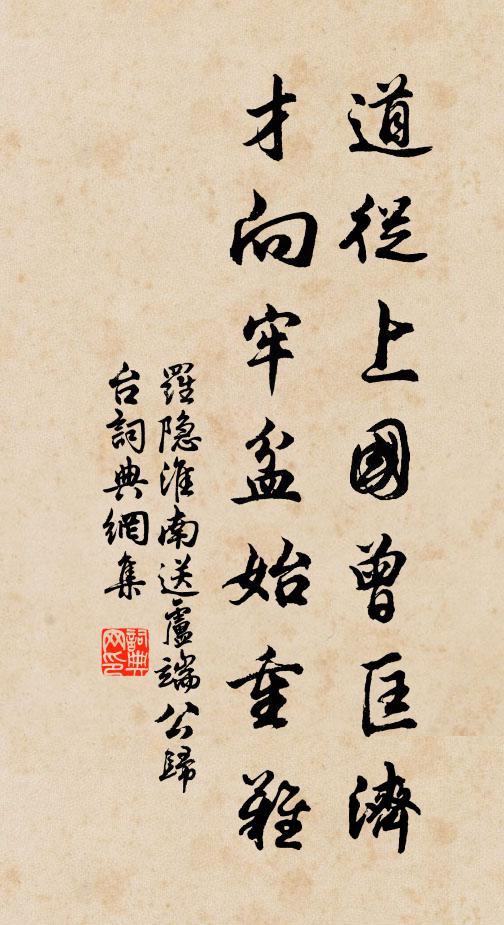 道從上國曾匡濟
才向牢盆始重難
羅隐淮南送盧端公歸
台詞典網集
詞典網印